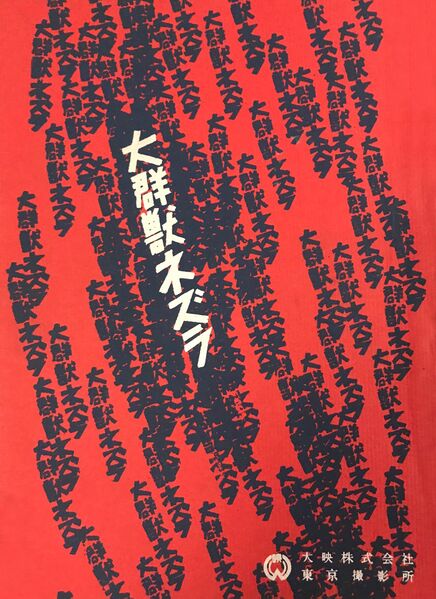 大群獣ネズラ
大映株式会社
東京撮影所